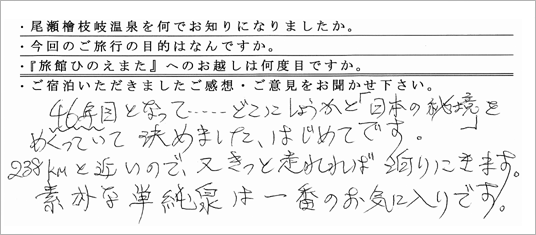 ・尾瀬檜枝岐温泉を何でお知りになりましたか。
・今回のご旅行の目的はなんですか。
・『旅館ひのえまた』へのお越しは何度目ですか。
・ご宿泊いただきましたご感想・ご意見をお聞かせ下さい。
46年目となって……どこにしようかと「日本の秘境」を
めくっていて 決めました、はじめてです。
238kmと近いので、又きっと走れれば泊りにきます。
素朴な単純泉は一番のお気に入りです。